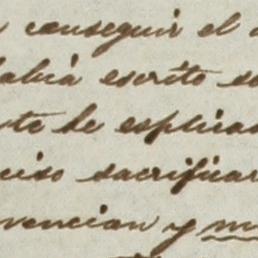 conseguir el
había escrito
te he esplica
ciso sacrificar
vencian y